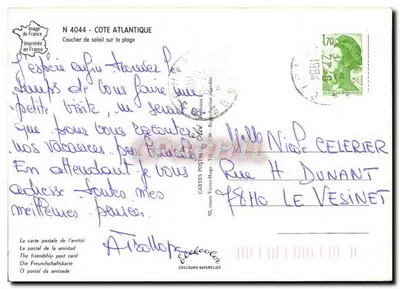 Image
de France
Imprimée
en France
N 4044 - COTE ATLANTIQUE
Coucher de soleil sur la plage
J'espère enfin trouver le
temps de vous faire une
petite visite, ne serait ce
que pour vous raconter
nos vacances
En attendant je vous
adresse toutes mes
meilleures pensées.
1,70
1984
Mlle Nicole CELERIER
Rue H DUNANT
78110 LE VESINET
La carte postale de l'amitié
La postal de la amistad
The friendship post card
Die Freundschaftskarte
O postal da amizade
COULEURS NATURELLES